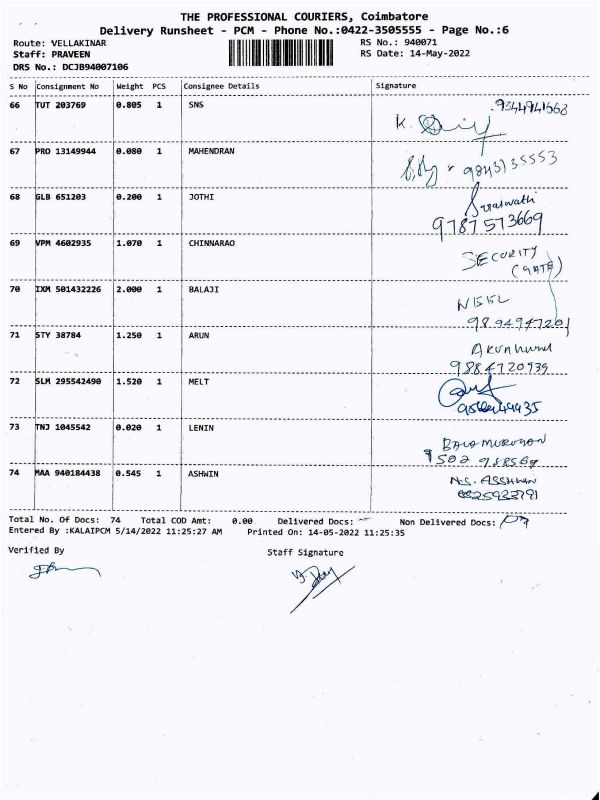 THE PROFESSIONAL COURIERS, Coimbatore
Delivery Runsheet - PCM - Phone No.:0422-3505555 - Page No.:6
Route: VELLAKINAR RS No.: 940071
Staff: PRAVEEN RS Date: 14-May-2022
DRS No.: DCJB94007106
S No Consignment No Weight PCS Consignee Details Signature
66 TUT 203769 0.805 1 SNS 9344941668
K.
67 PRO 13149944 0.080 1 MAHENDRAN
9843135553
68 GLB 651203 0.200 1 JOTHI Saraswathi
9787573669
69 VPM 4602935 1.070 1 CHINNARAO SECURITY
(GATE)
70 IXM 501432226 2.000 1 BALAJI
9894947201
71 STY 38784 1.250 1 ARUN
9884720939
72 SLM 295542490 1.520 1 MELT
73 TNJ 1045542 0.020 1 LENIN BALAMURUGAN
74 MAA 940184438 0.545 1 ASHWIN N.S. ASSHWIN
Total No. Of Docs: 74 Total COD Amt: 0.00 Delivered Docs: Non Delivered Docs:
Entered By :KALAIPCM 5/14/2022 11:25:27 AM Printed On: 14-05-2022 11:25:35
Verified By Staff Signature